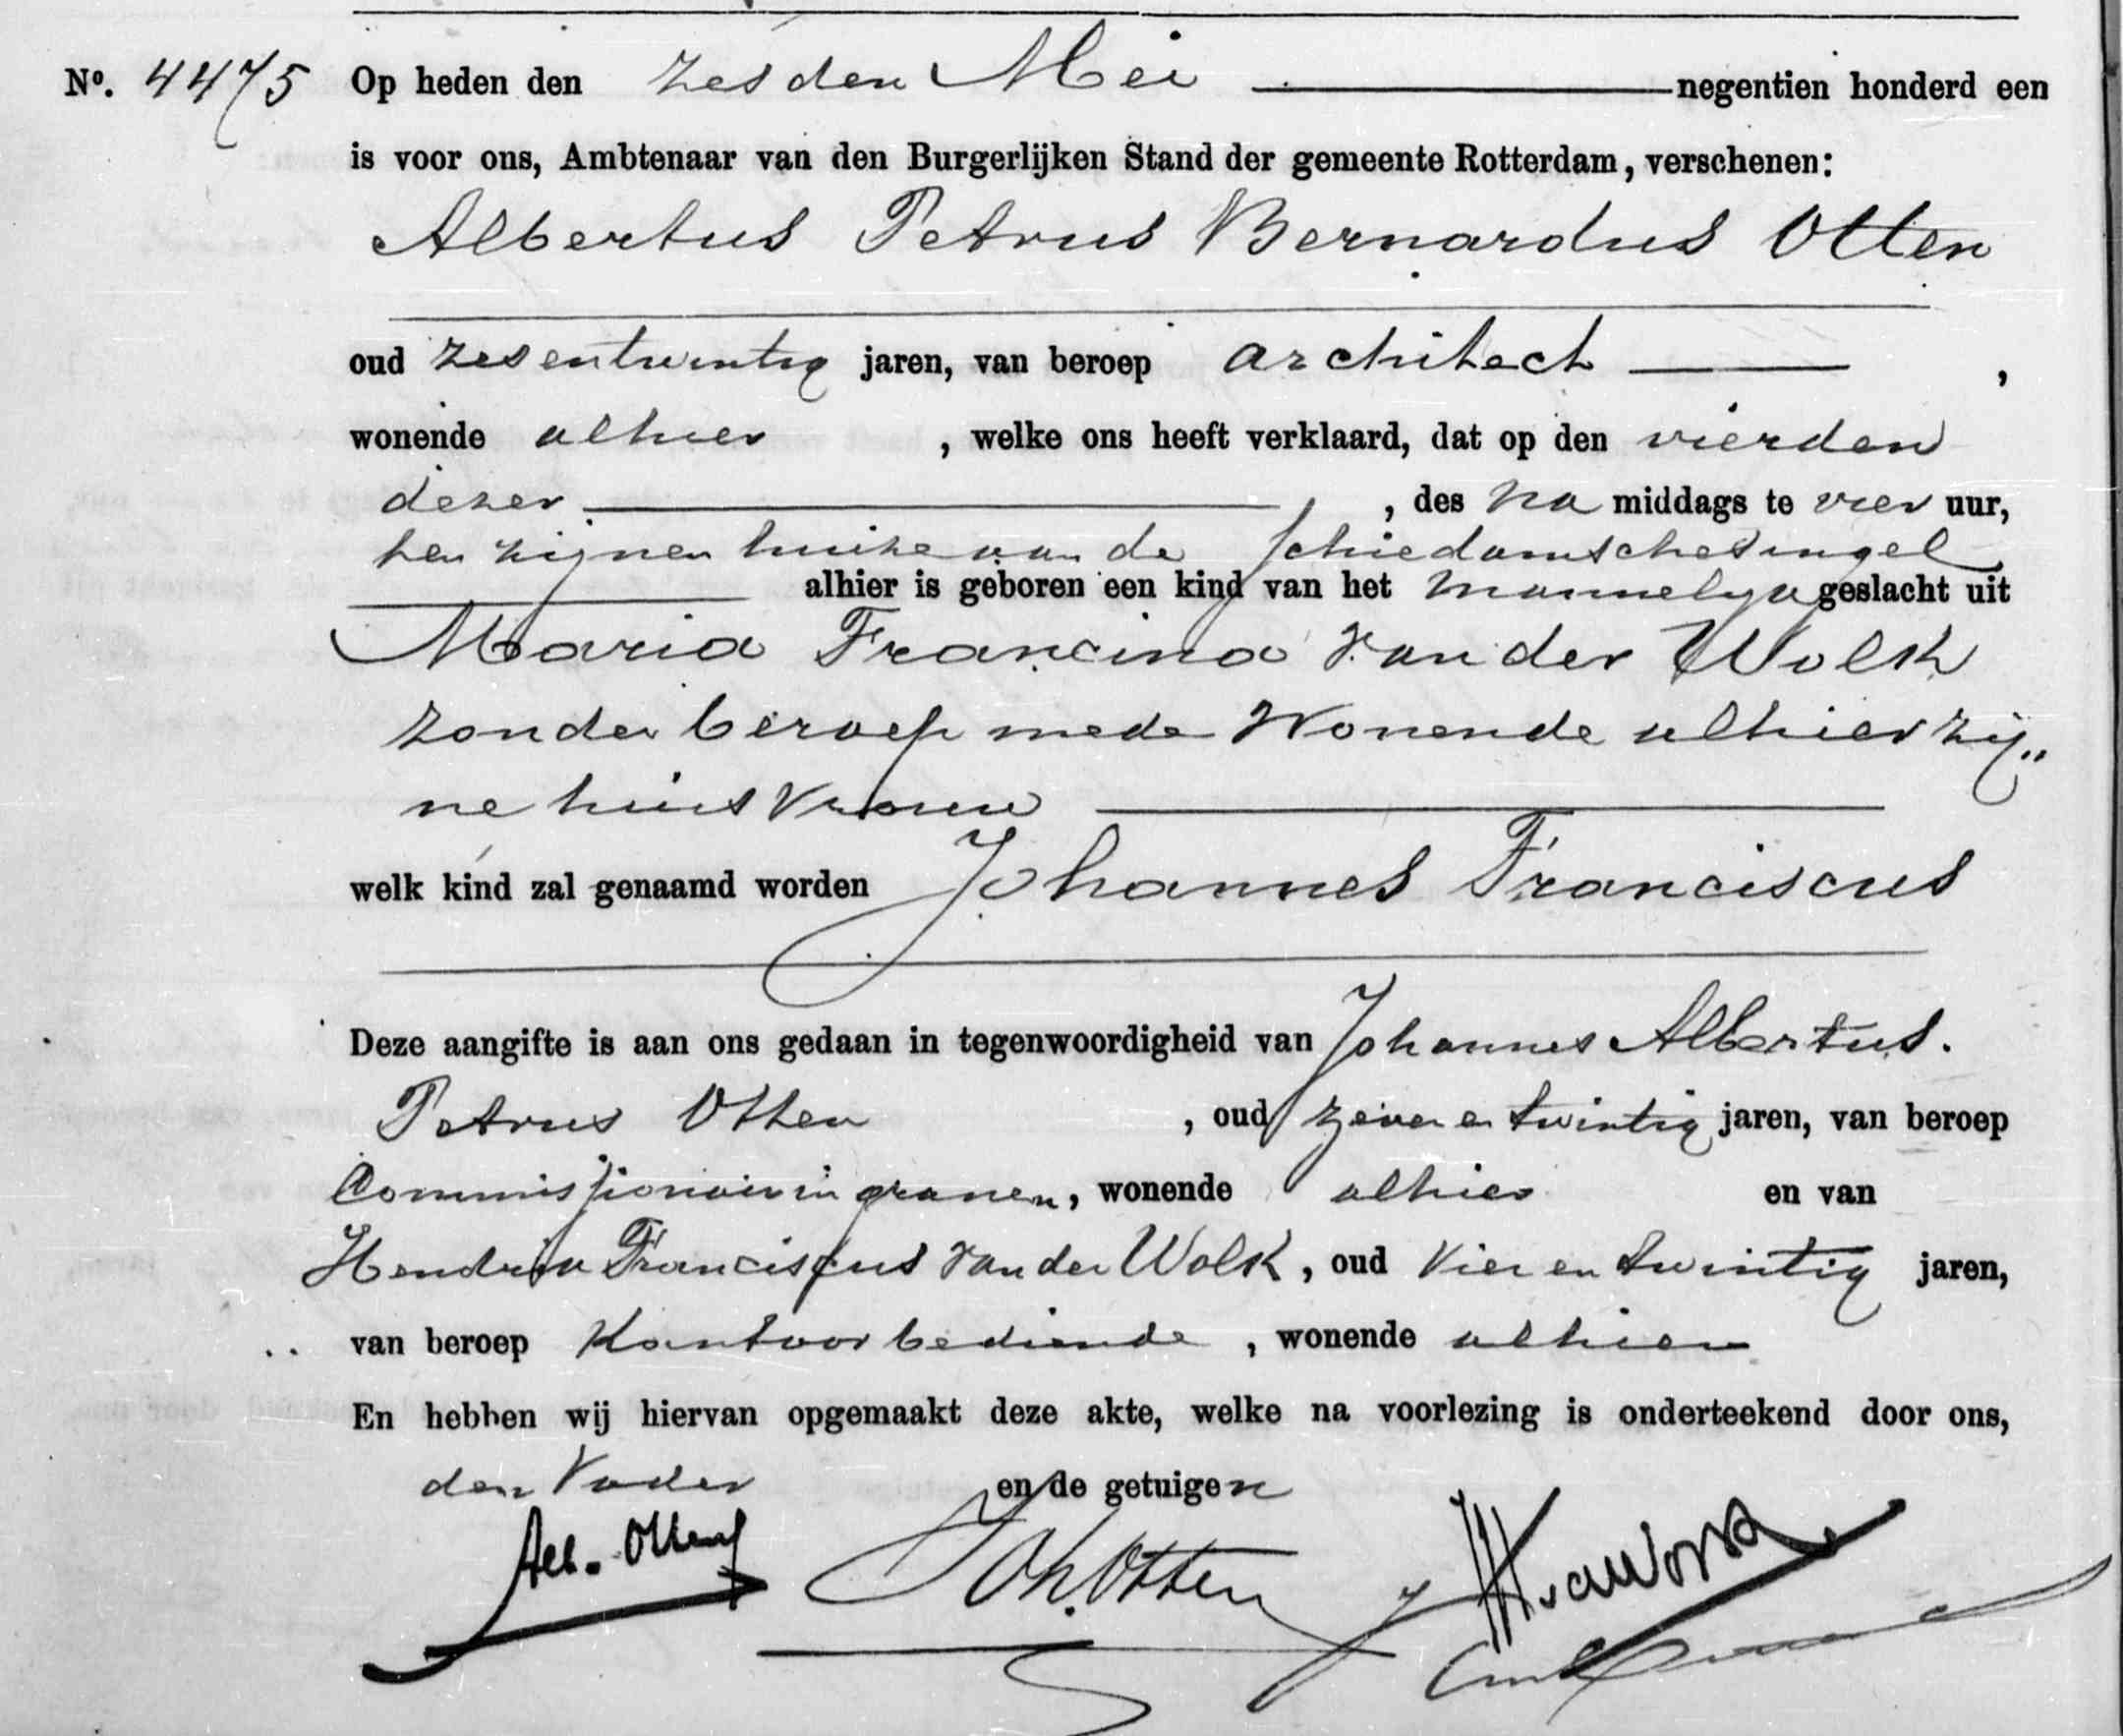 No. 4475 Op heden den zesden Mei negentien honderd een
is voor ons, Ambtenaar van den Burgerlijken Stand der gemeente Rotterdam, verschenen:
Albertus Petrus Bernardus Otten
oud zesentwintig jaren, van beroep architect,
wonende alhier, welke ons heeft verklaard, dat op den vierden
dezer, des na middags te vier uur,
ten zijnen huize aan de Schiedamschesingel
alhier is geboren een kind van het mannelijk geslacht uit
Maria Francina van der Wolk
zonder beroep mede wonende alhier zij„
ne huisvrouw
welk kind zal genaamd worden Johannes Franciscus
Deze aangifte is aan ons gedaan in tegenwoordigheid van Johannes Albertus
Petrus Otten, oud zevenentwintig jaren, van beroep
Commissionair in granen, wonende alhier en van
Hendrik Franciscus van der Wolk, oud vierentwintig jaren,
van beroep Kantoorbediende, wonende alhier
En hebben wij hiervan opgemaakt deze akte, welke na voorlezing is onderteekend door ons,
den Vader en de getuigen
Alb. Otten Joh. Otten